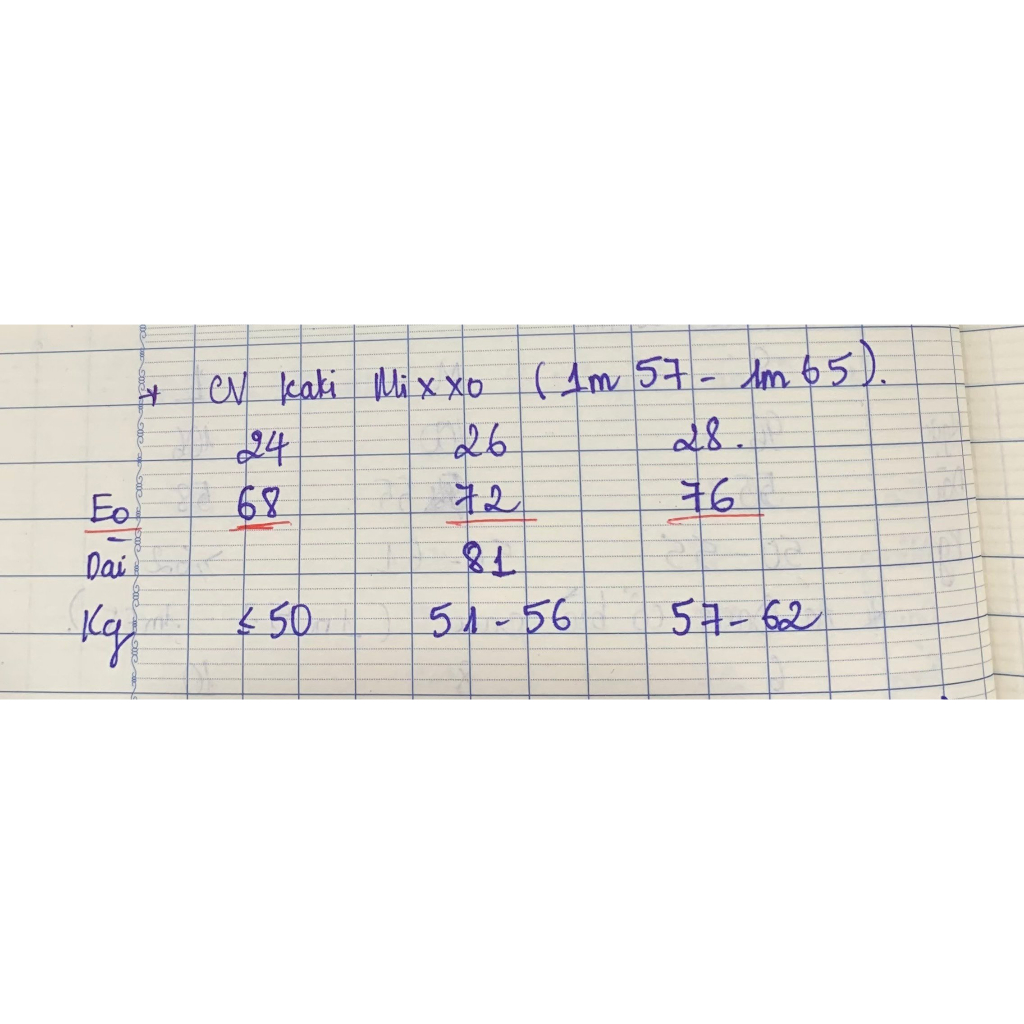 + CV Kaki Mixxo (1m57 - 1m65).
24 26 28.
Eo 68 72 76
Dài 81
Kg ≤ 50 51 - 56 57 - 62